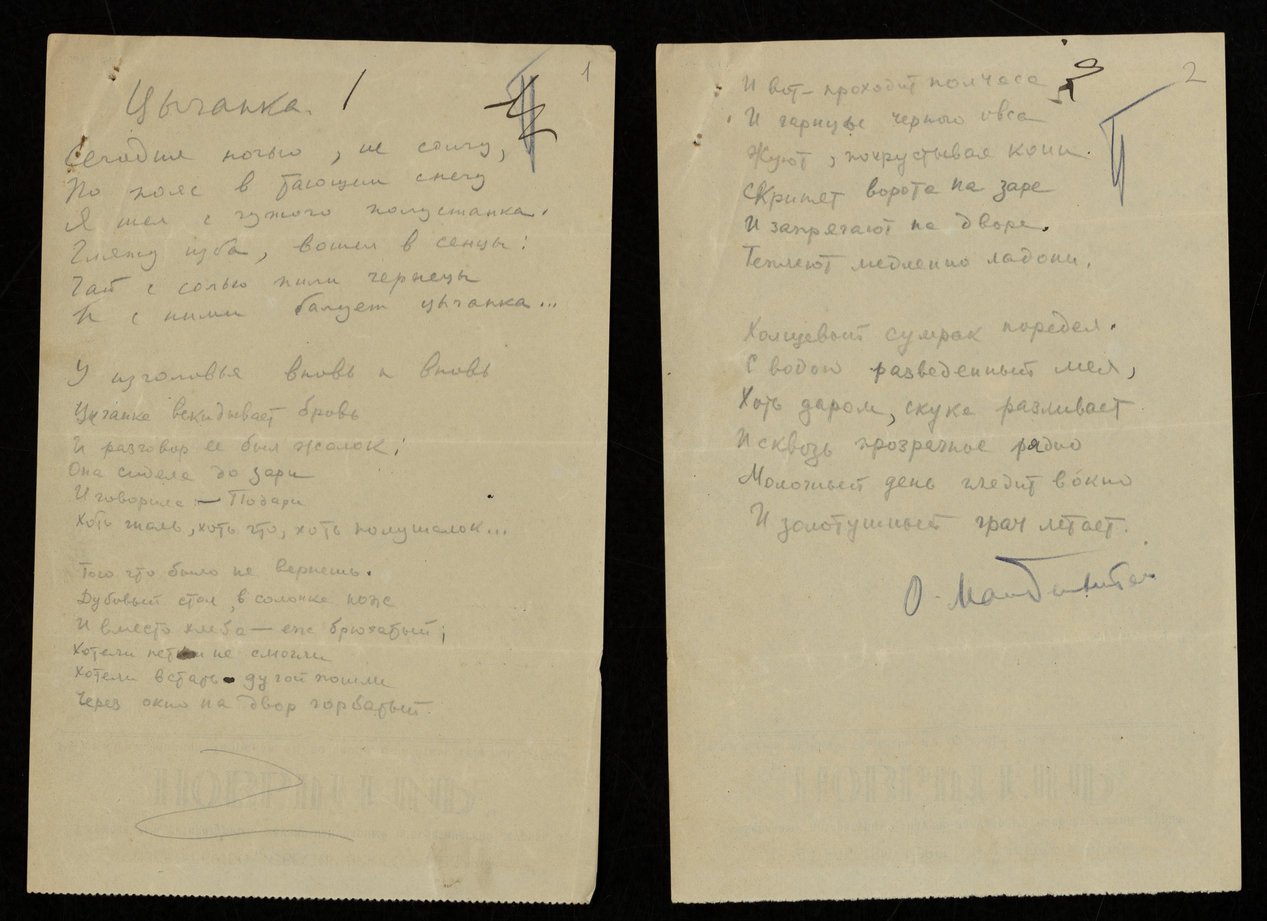 Цыганка.
1
Сегодня ночью, не солгу,
По пояс в тающем снегу
Я шел с чужого полустанка.
Гляжу изба, вошел в сенцы:
Чай с солью пили чернецы
И с ними балует цыганка...
У изголовья вновь и вновь
Цыганка вскидывает бровь
И разговор ее был жалок;
Она сидела до зари
И говорила — Подари
Хоть шаль, хоть что, хоть полушалок...
Того что было не вернешь.
Дубовый стол, в солонке нож
И вместо хлеба — еж брюхатый;
Хотели петь и не смогли
Хотели встать дугой пошли
Через окно на двор горбатый.
2
И вот — проходит полчаса
И гарнцы черного овса
Жуют, похрустывая кони.
Скрипят ворота на заре
И запрягают на дворе.
Теплеют медленно ладони.
Холщевый сумрак поредел.
С водою разведенный мел,
Хоть даром, скука разливает
И сквозь прозрачное рядно
Молочный день глядит в окно
И золотушный грач летает.
О. Мандельштам